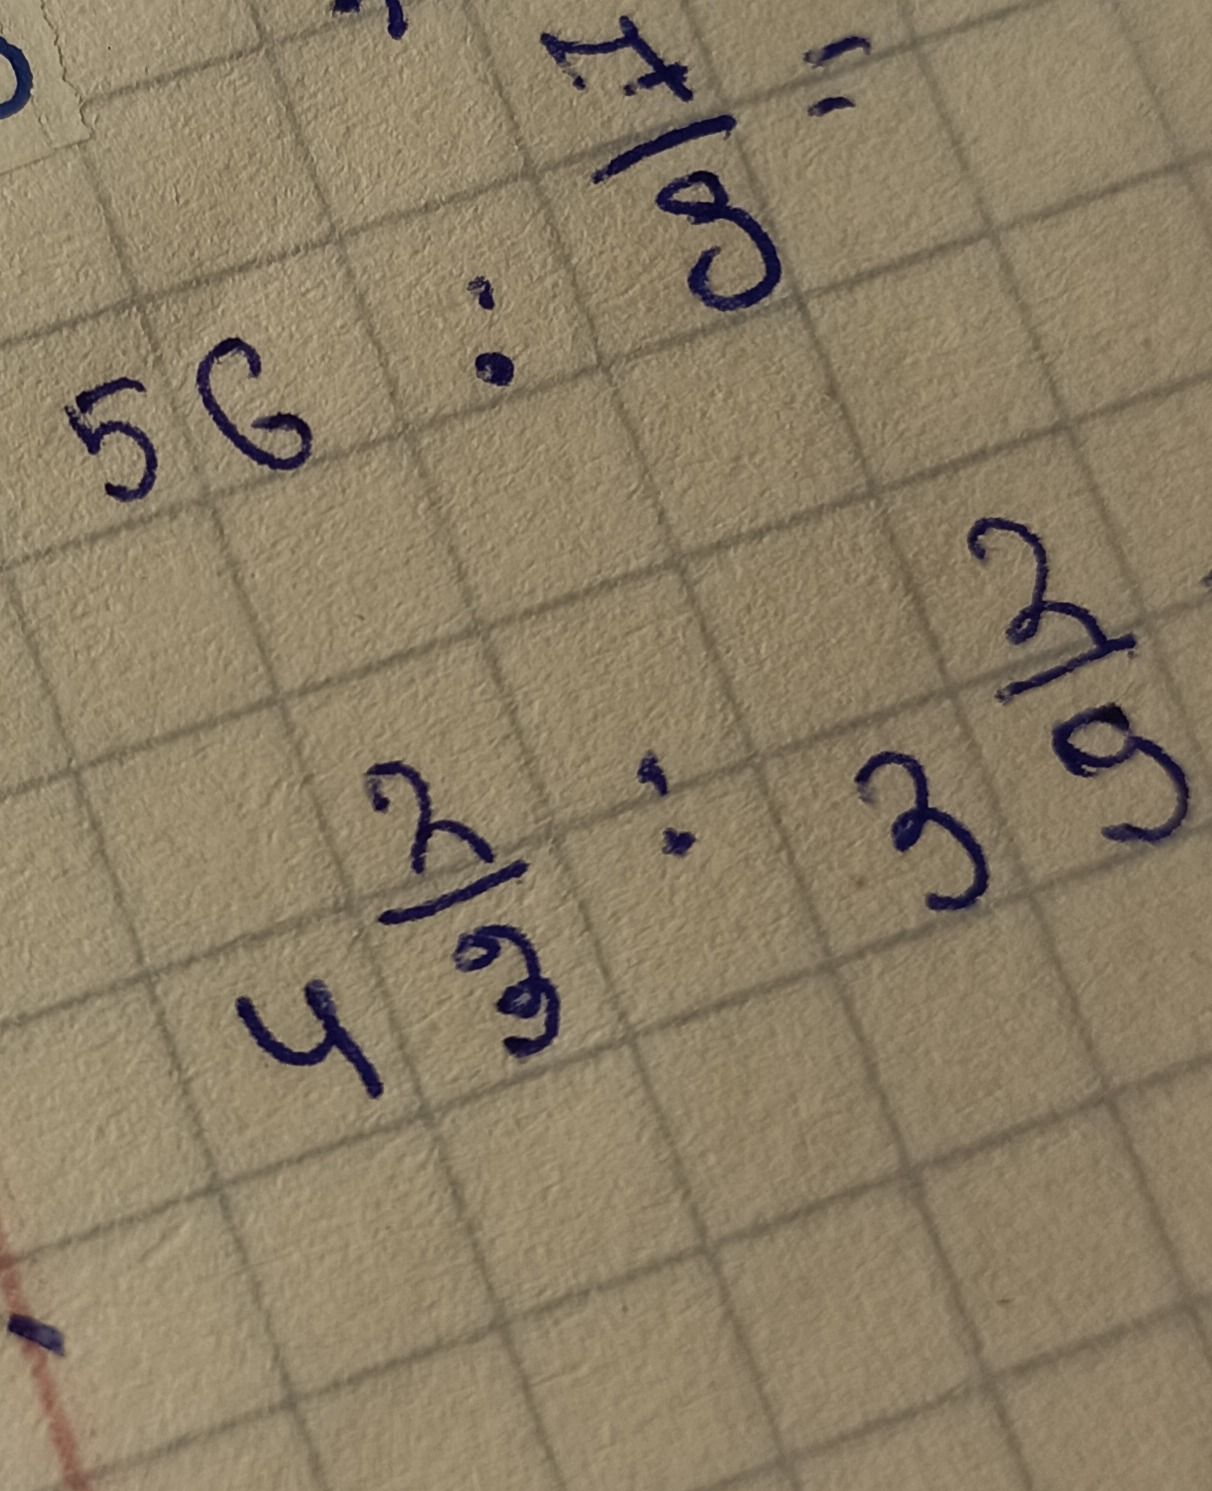 56 : 7/8 =
4 2/3 : 3 2/9